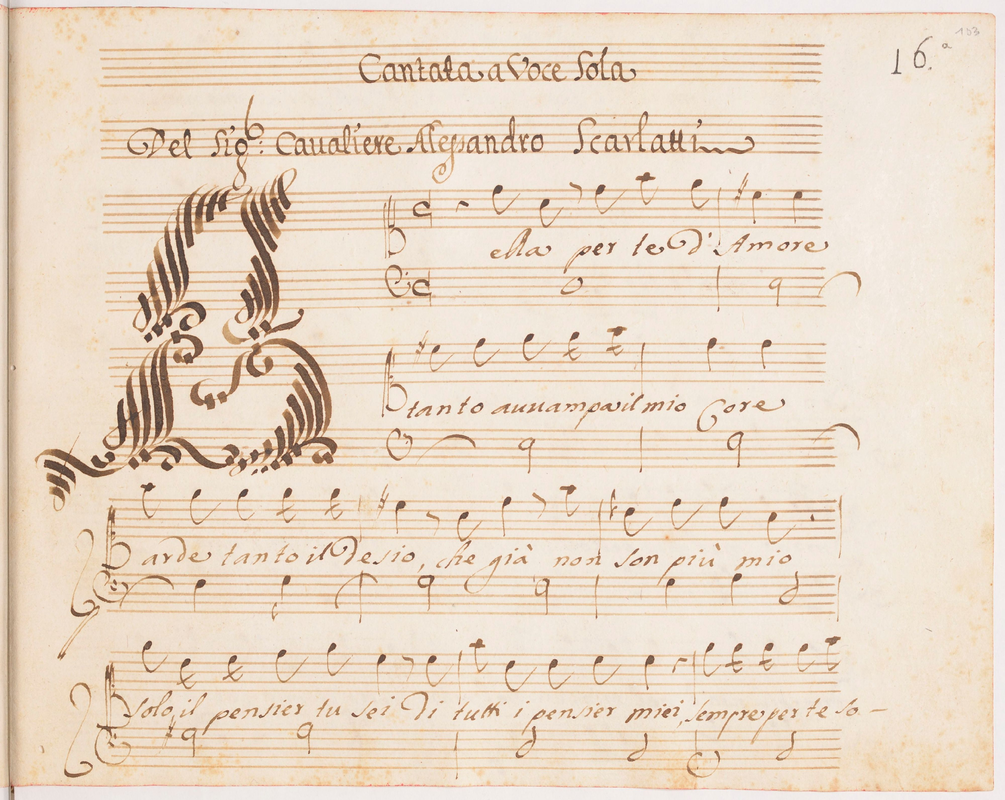 103
16.a
Cantata a Voce Sola
Del Sigr: Caualiere Alessandro Scarlatti
Bella per te d'Amore
tanto auuampa il mio Core
arde tanto il Desio, che già non son più mio
solo, il pensier tu sei di tutti i pensier miei, sempre per te so-